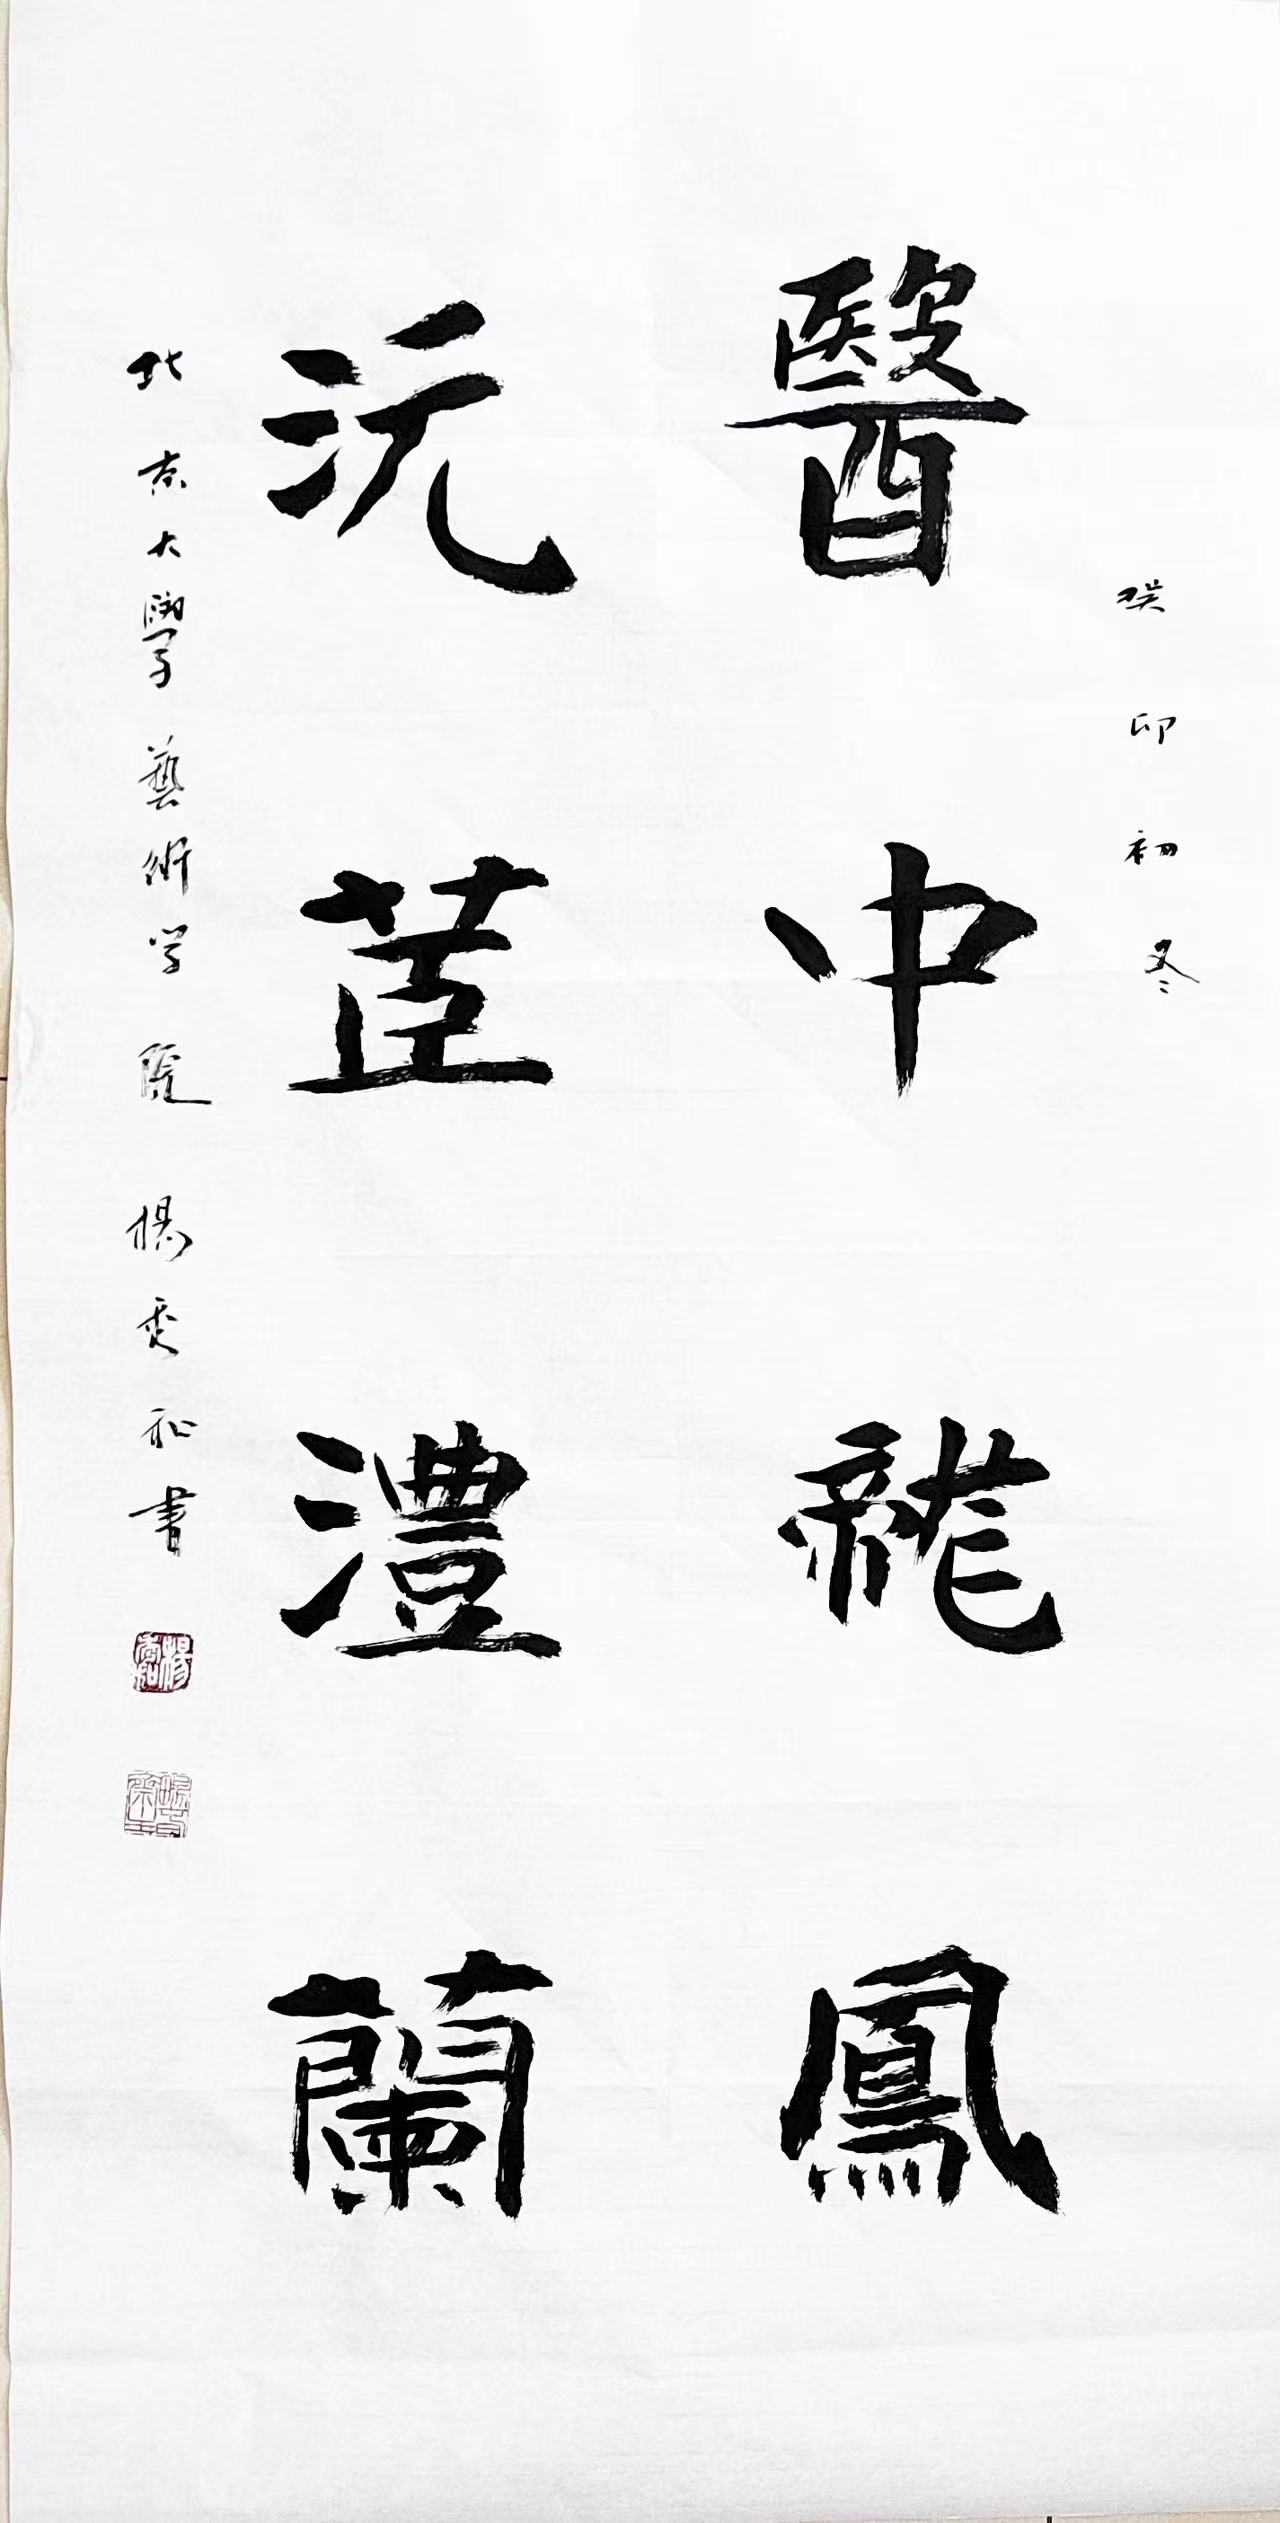 癸卯初冬
醫中龍鳳
沅芷澧蘭
北京大學藝術学院 楊 書